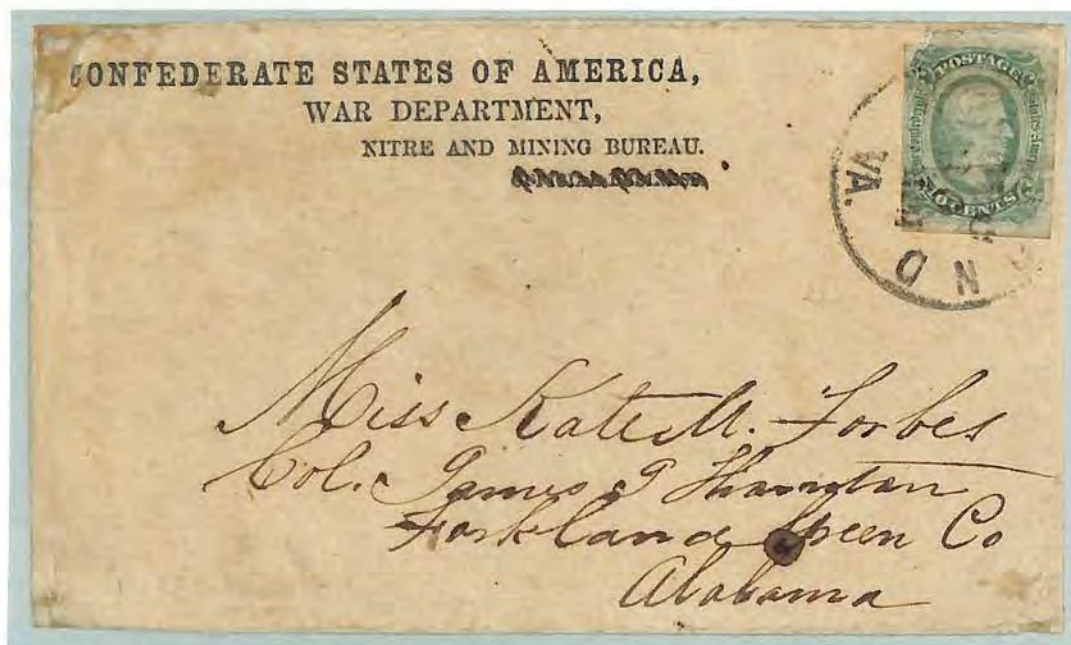 CONFEDERATE STATES OF AMERICA,
WAR DEPARTMENT,
NITRE AND MINING BUREAU.
POSTAGE
TEN CENTS
N D
VA.
Miss Kate M. Forbes
Col. James I Thornton
Forkland Green Co
Alabama